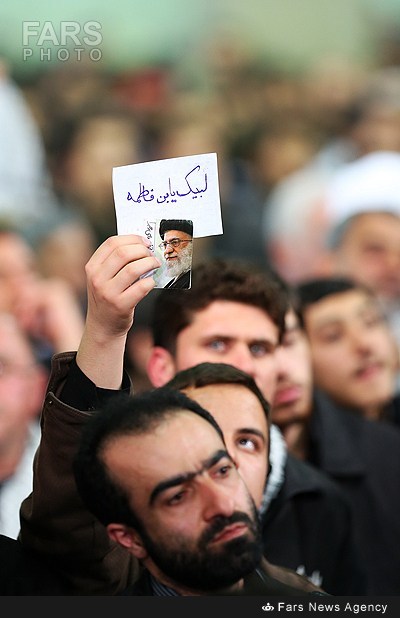 FARS
PHOTO
لبیک یابن فاطمه
Fars News Agency